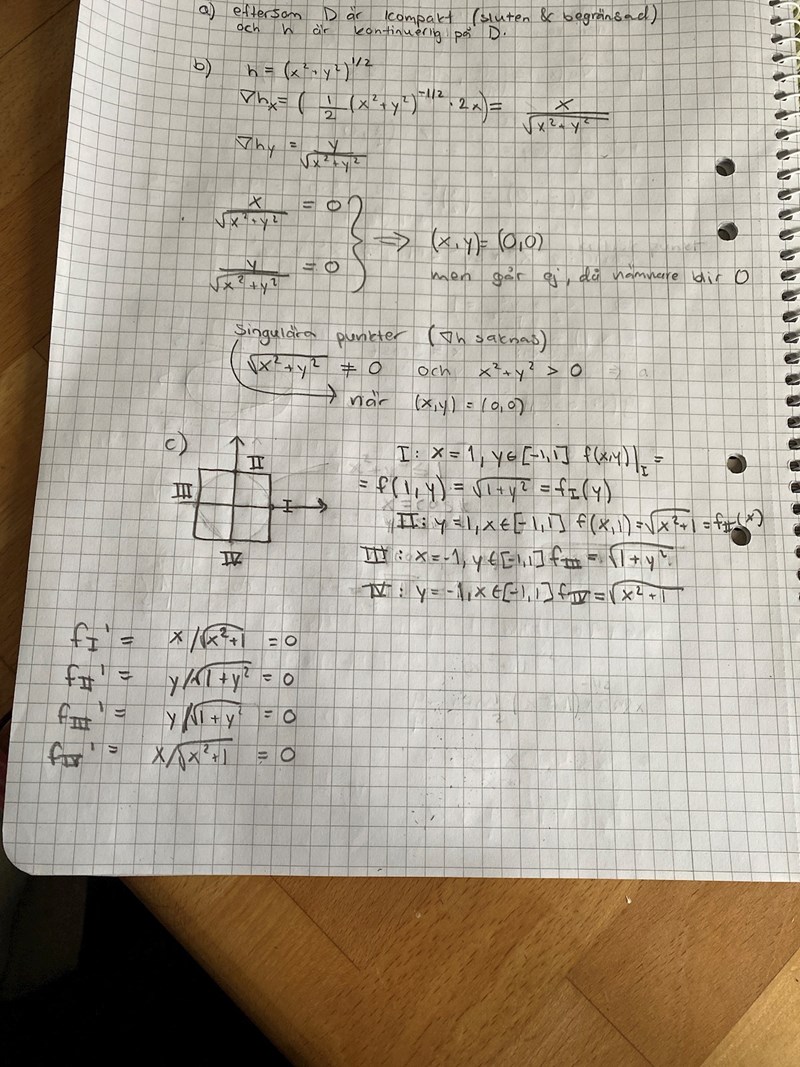 a) eftersom D är kompakt (sluten & begränsad)
och h är kontinuerlig på D.
b) h = (x² + y²)^1/2
∇hx = ( 1/2 (x² + y²)^-1/2 · 2x) = x/√x² + y²
∇hy = y/√x² + y²
x/√x² + y² = 0
y/√x² + y² = 0 } ⟹ (x,y) = (0,0)
men går ej, då nämnare blir 0
Singulära punkter (∇h saknas)
√x² + y² ≠ 0 och x² + y² > 0
när (x,y) = (0,0)
c) II
III I
IV
I: x = 1, y ∈ [-1,1] f(x,y)|I =
= f(1,y) = √1+y² = fI(y)
II: y = 1, x ∈ [-1,1] f(x,1) = √x²+1 = fII(x)
III: x = -1, y ∈ [-1,1] fIII = √1+y²
IV: y = -1, x ∈ [-1,1] fIV = √x²+1
fI' = x/√x²+1 = 0
fII' = y/√1+y² = 0
fIII' = y/√1+y² = 0
fIV' = x/√x²+1 = 0